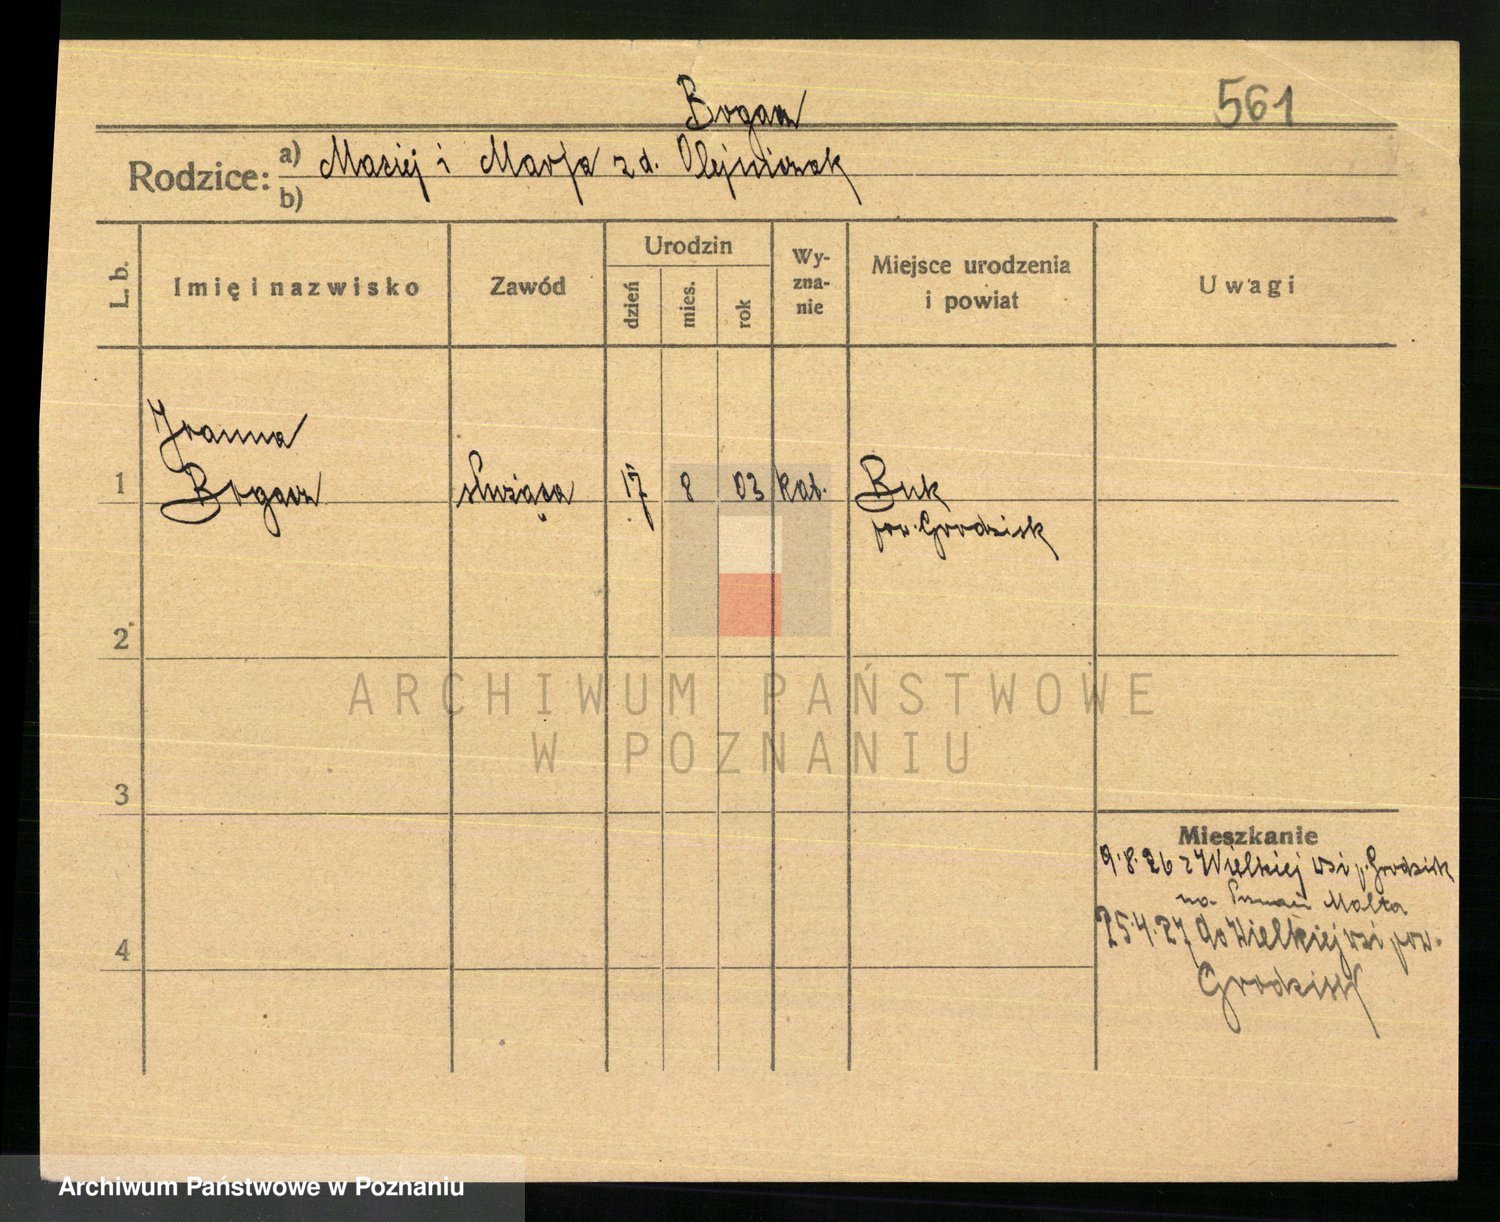 Bogacz
561
Rodzice: a) Maciej i Marja z d. Olejniczak
b)
L. b.
Imię i nazwisko
Zawód
Urodzin
dzień
mies.
rok
Wy-
zna-
nie
Miejsce urodzenia
i powiat
Uwagi
Joanna
1 Bogacz służąca 17 8 03 kat. Buk
pow. Grodzisk
2
3
4
Mieszkanie
9.8.26 z Wielkiej wsi p. Grodzisk
na Poznań Malta
25.4.27 do Wielkiej wsi pow.
Grodzisk
ARCHIWUM PAŃSTWOWE
W POZNANIU
Archiwum Państwowe w Poznaniu